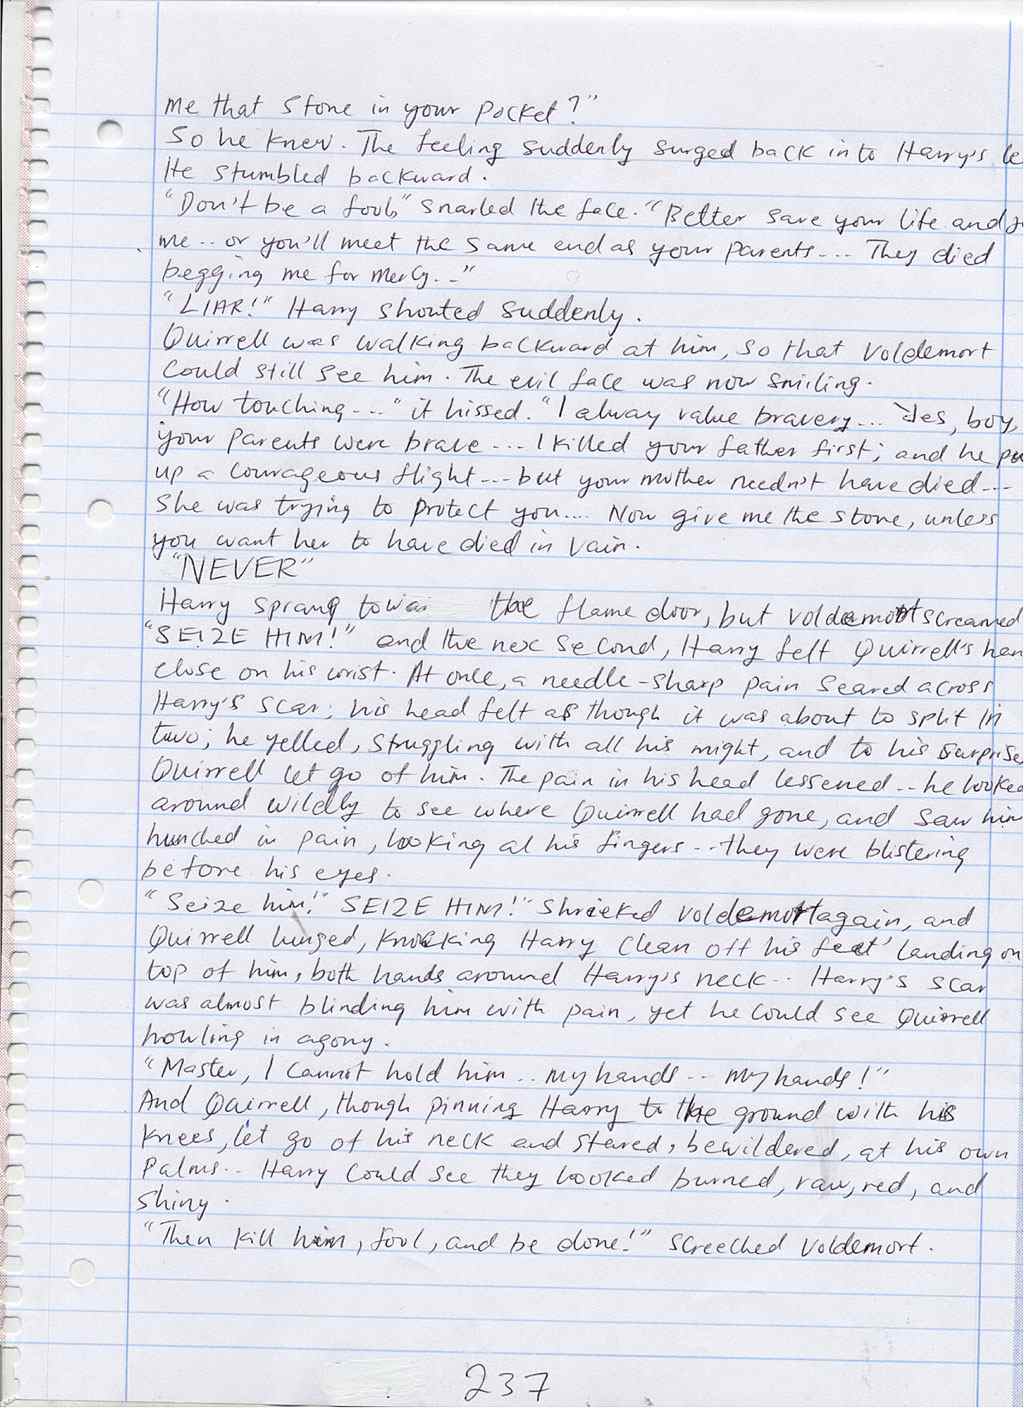 me that stone in your pocket?"
So he knew. The feeling suddenly surged back into Harry's le
He stumbled backward.
"Don't be a fool" snarled the face. "Better save your life and j
me.. or you'll meet the same end as your parents.... They died
begging me for mercy..."
"LIAR!" Harry shouted suddenly.
Quirrell was walking backward at him, so that Voldemort
could still see him. The evil face was now smiling.
"How touching...." it hissed. "I alway value bravery.... Yes, boy,
your parents were brave.... I killed your father first; and he pu
up a courageous flight.... but your mother needn't have died....
She was trying to protect you.... Now give me the stone, unless
you want her to have died in vain.
"NEVER"
Harry sprang towar the flame door, but Voldemort screamed
"SEIZE HIM!" and the nex second, Harry felt Quirrell's han
close on his wrist. At once, a needle-sharp pain seared across
Harry's scar; his head felt as though it was about to split in
two; he yelled, struggling with all his might, and to his surprise
Quirrell let go of him. The pain in his head lessened.. he looked
around wildly to see where Quirrell had gone, and saw him
hunched in pain, looking at his fingers.. they were blistering
before his eyes.
"Seize him!" SEIZE HIM!" shrieked Voldemort again, and
Quirrell lunged, knocking Harry clean off his feet' landing on
top of him, both hands around Harry's neck.. Harry's scar
was almost blinding him with pain, yet he could see Quirrell
howling in agony.
"Master, I cannot hold him.. my hands.. my hands!"
And Quirrell, though pinning Harry to the ground with his
knees, let go of his neck and stared, bewildered, at his own
palms.. Harry could see they looked burned, raw, red, and
shiny.
"Then kill him, fool, and be done!" screeched Voldemort.
237